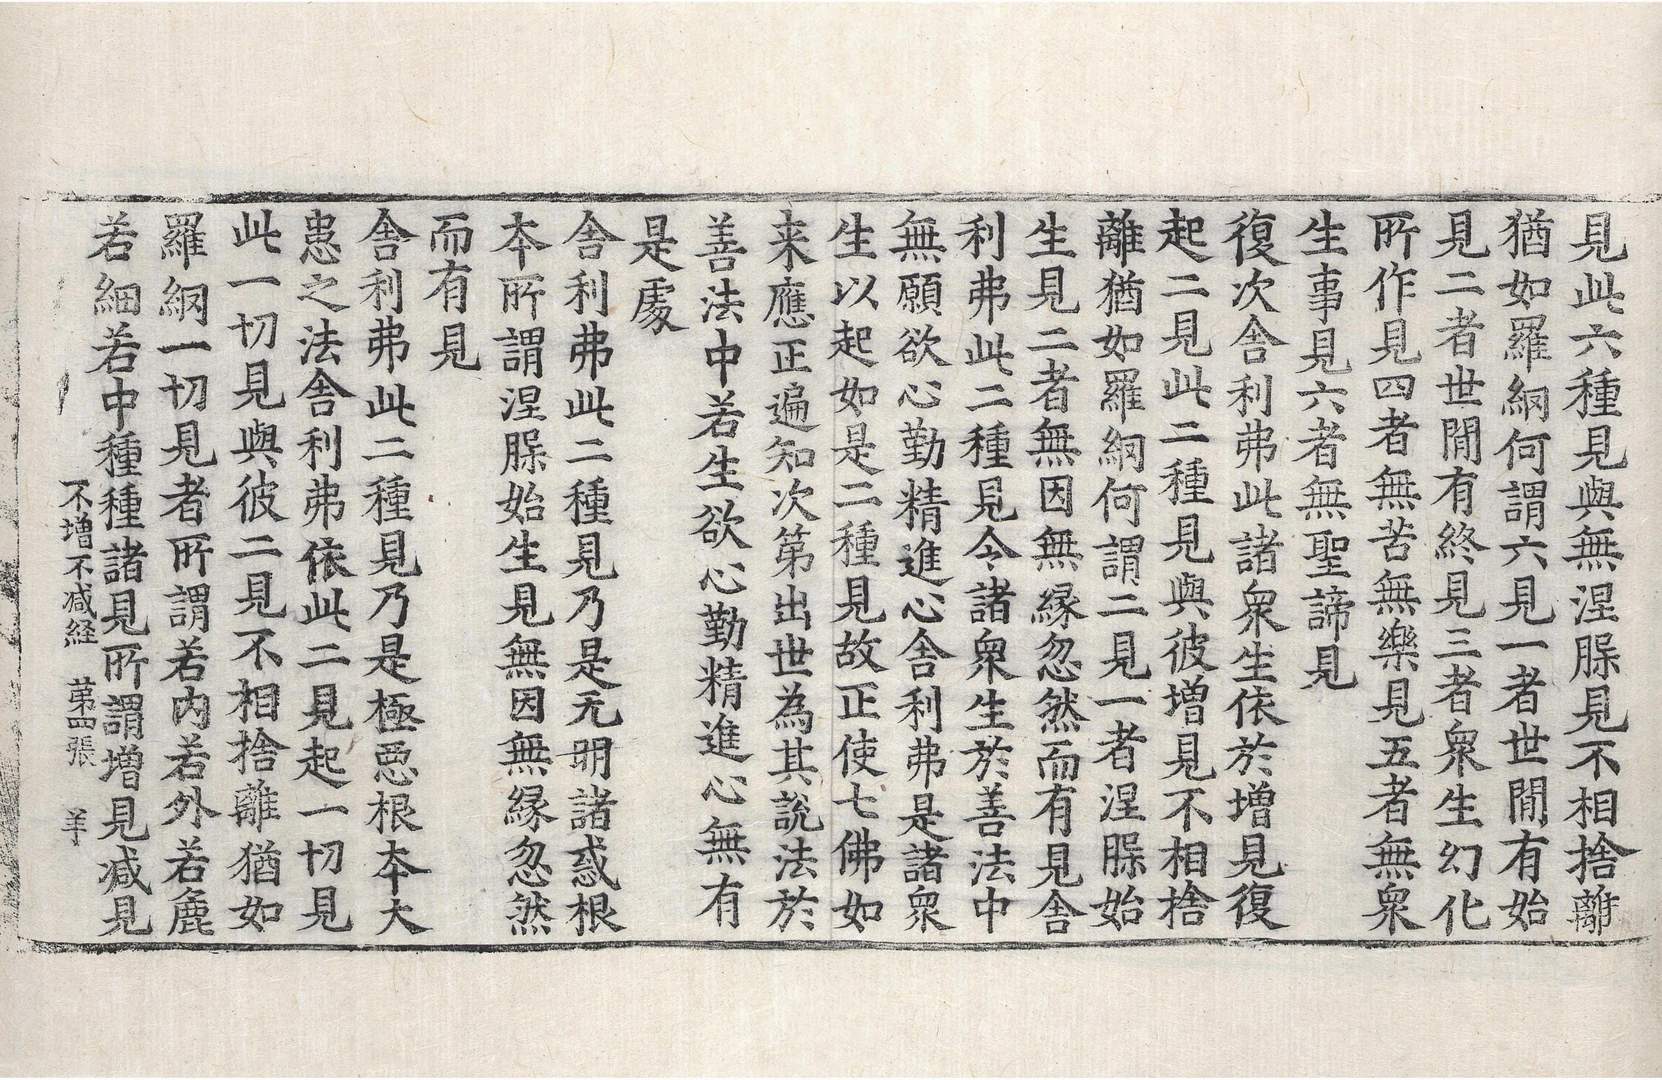 見此六種見與無涅槃見不相捨離
猶如羅網何謂六見一者世間有始
見二者世間有終見三者衆生幻化
所作見四者無苦無樂見五者無衆
生事見六者無聖諦見
復次舍利弗此諸衆生依於增見復
起二見此二種見與彼增見不相捨
離猶如羅網何謂二見一者涅槃始
生見二者無因無緣忽然而有見舍
利弗此二種見令諸衆生於善法中
無願欲心勤精進心舍利弗是諸衆
生以起如是二種見故正使七佛如
来應正遍知次第出世為其說法於
善法中若生欲心勤精進心無有
是處
舍利弗此二種見乃是无明諸惑根
本所謂涅槃始生見無因無緣忽然
而有見
舍利弗此二種見乃是極惡根本大
患之法舍利弗依此二見起一切見
此一切見與彼二見不相捨離猶如
羅網一切見者所謂若内若外若麁
若細若中種種諸見所謂增見减見
不增不减経 第四張 羊